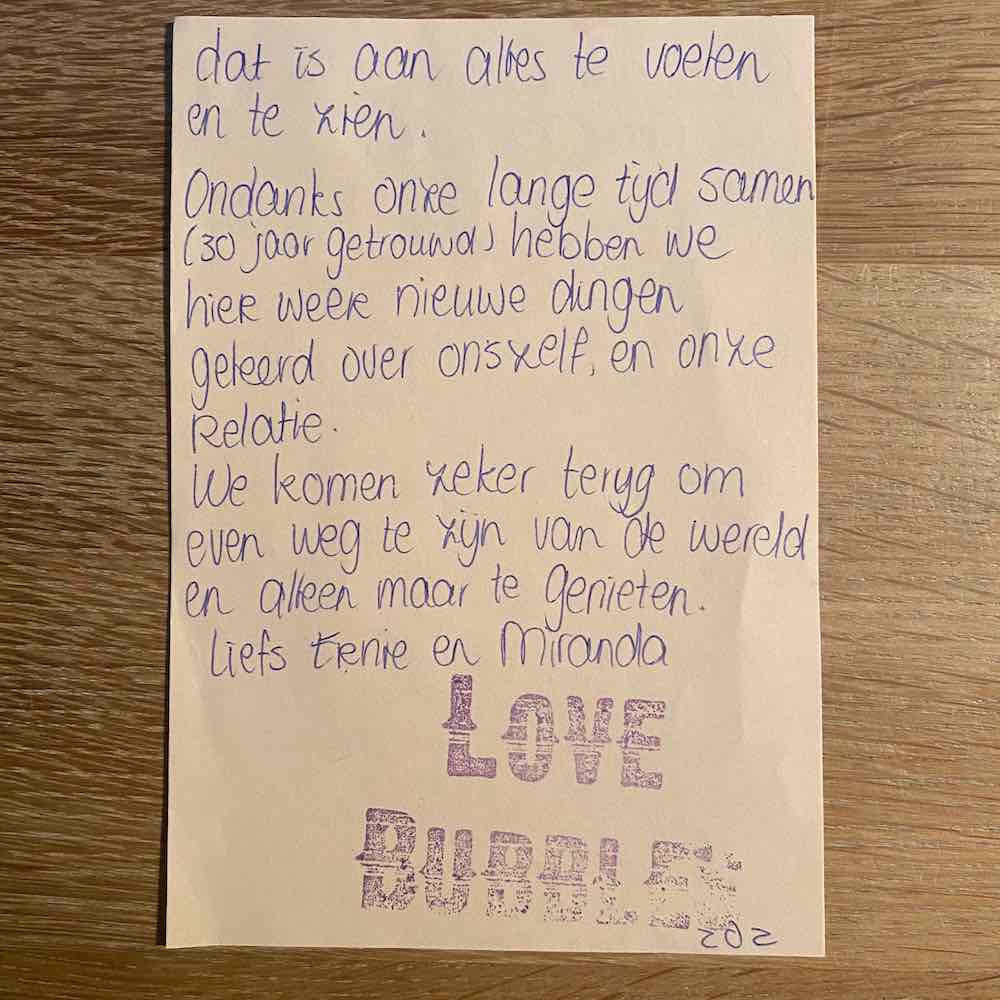 dat is aan alles te voelen
en te zien.
Ondanks onze lange tijd samen
(30 jaar getrouwd) hebben we
hier weer nieuwe dingen
geleerd over onszelf, en onze
Relatie.
We komen zeker terug om
even weg te zijn van de wereld
en alleen maar te genieten.
Liefs Ernie en Miranda
LOVE
BUBBLES
202